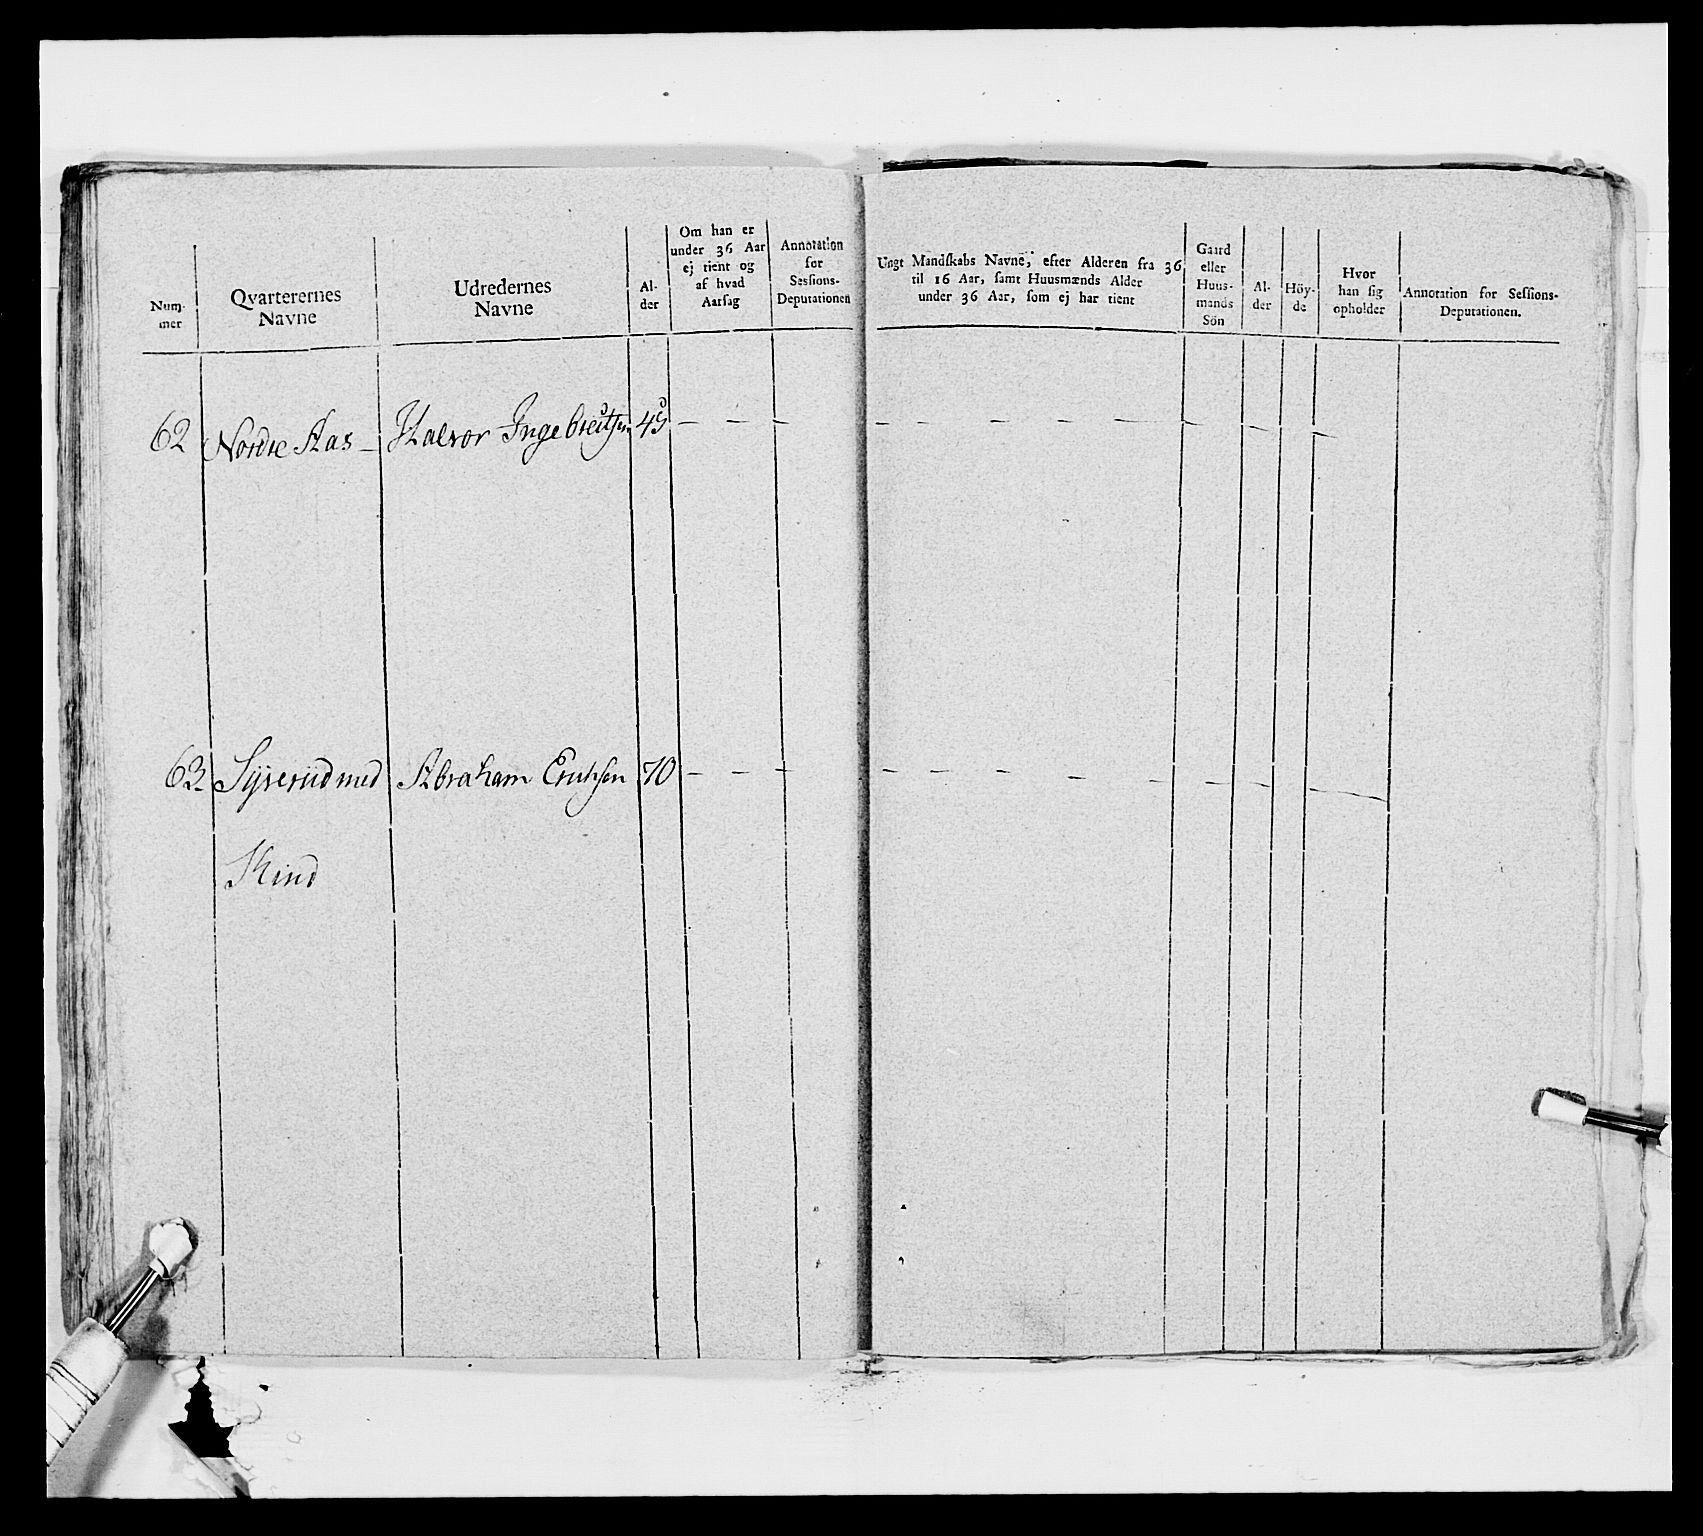 Num-
mer
Qvarterernes
Navne
Udredernes
Navne
Al-
der
Om han er
under 36 Aar
ej tient og
af hvad
Aarsag
Annotation
for
Sessions-
Deputationen
Ungt Mandſkabs Navne, efter Alderen fra 36
til 16 Aar, ſamt Huusmænds Alder
under 36 Aar, ſom ej har tient
Gaard
eller
Huus-
mands
Sön
Al-
der
Höy-
de
Hvor
han ſig
opholder
Annotation for Seſſions-
Deputationen.
62 Nordre Aas – Halvor Ingebretsen 45 – – – – – – – – – –
63 med Abraham Ericksen 70 – – – – – – – – – –
Kind